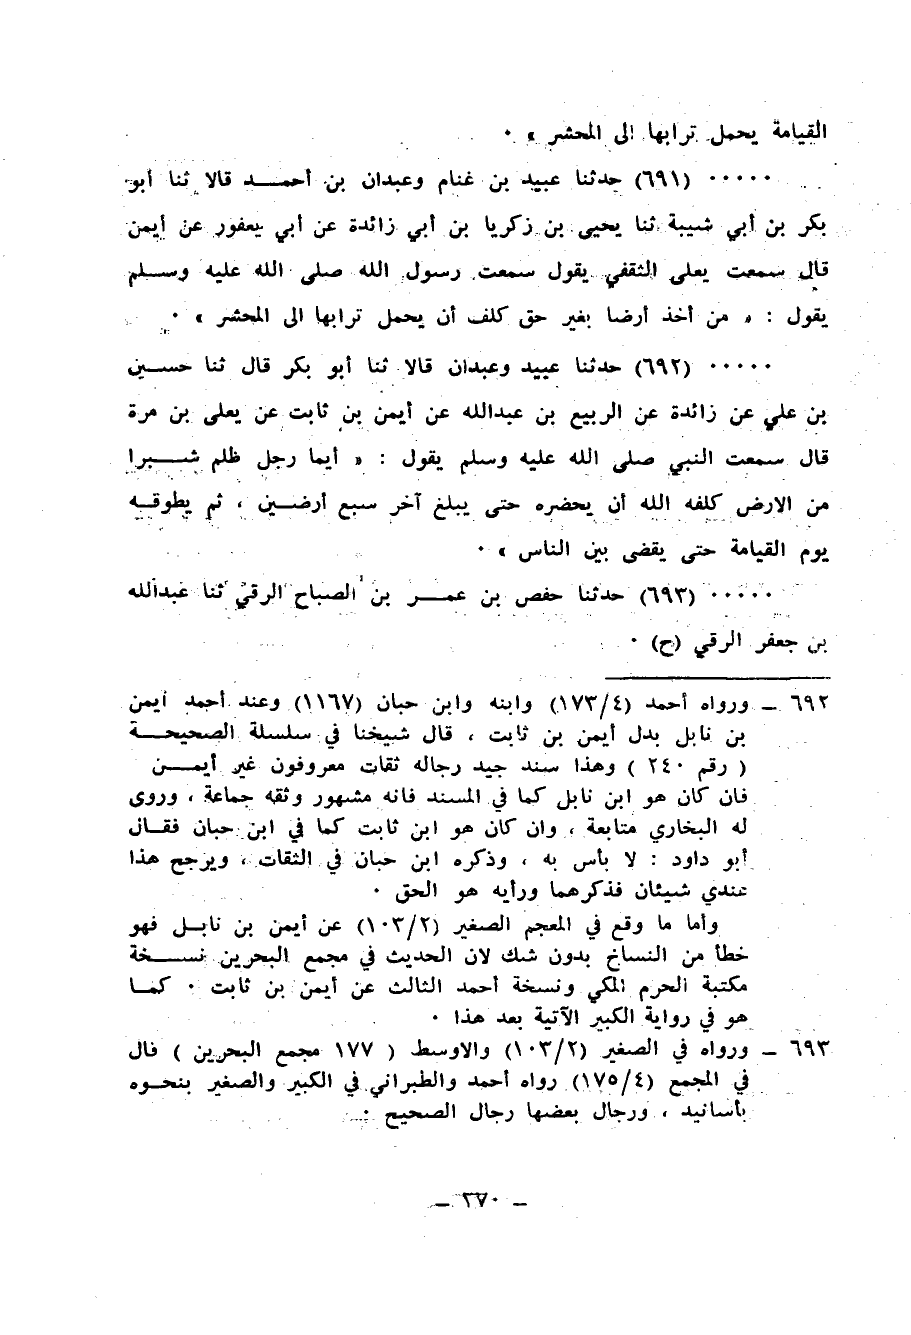 القيامة يحمل ترابها الى المحشر » ٠
٠٠٠٠٠ (٦٩١) حدثنا عبيد بن غنام وعبدان بن أحمــد قالا ثنا أبو
بكر بن أبي شيبة ثنا يحيى بن زكريا بن أبي زائدة عن أبي يعفور عن أيمن
قال سمعت يعلى الثقفي يقول سمعت رسول الله صلى الله عليه وســلم
يقول : « من أخذ أرضا بغير حق كلف أن يحمل ترابها الى المحشر » ٠
٠٠٠٠٠ (٦٩٢) حدثنا عبيد وعبدان قالا ثنا أبو بكر قال ثنا حســين
بن علي عن زائدة عن الربيع بن عبدالله عن أيمن بن ثابت عن يعلى بن مرة
قال سمعت النبي صلى الله عليه وسلم يقول : « أيما رجل ظلم شــبرا
من الارض كلفه الله أن يحضره حتى يبلغ آخر سبع أرضــين ، ثم يطوقــه
يوم القيامة حتى يقضى بين الناس » ٠
٠٠٠٠٠ (٦٩٣) حدثنا حفص بن عمــر بن الصباح الرقي ثنا عبدالله
بن جعفر الرقي (ح) ٠
٦٩٢ ـ ورواه أحمد (١٧٣/٤) وابنه وابن حبان (١١٦٧) وعند أحمد أيمن
بن نابل بدل أيمن بن ثابت ، قال شيخنا في سلسلة الصحيحــة
( رقم ٢٤٠ ) وهذا سند جيد رجاله ثقات معروفون غير أيمــن
فان كان هو ابن نابل كما في المسند فانه مشهور وثقه جماعة ، وروى
له البخاري متابعة ، وان كان هو ابن ثابت كما في ابن حبان فقــال
أبو داود : لا بأس به ، وذكره ابن حبان في الثقات ، ويرجح هذا
عندي شيئان فذكرهما ورأيه هو الحق ٠
وأما ما وقع في المعجم الصغير (١٠٣/٢) عن أيمن بن نابــل فهو
خطأ من النساخ بدون شك لان الحديث في مجمع البحرين نســخة
مكتبة الحرم المكي ونسخة أحمد الثالث عن أيمن بن ثابت ٠ كمــا
هو في رواية الكبير الآتية بعد هذا ٠
٦٩٣ ـ ورواه في الصغير (١٠٣/٢) والاوسط ( ١٧٧ مجمع البحرين ) قال
في المجمع (١٧٥/٤) رواه أحمد والطبراني في الكبير والصغير بنحوه
بأسانيد ، ورجال بعضها رجال الصحيح ٠
ـ ٢٧٠ ـ